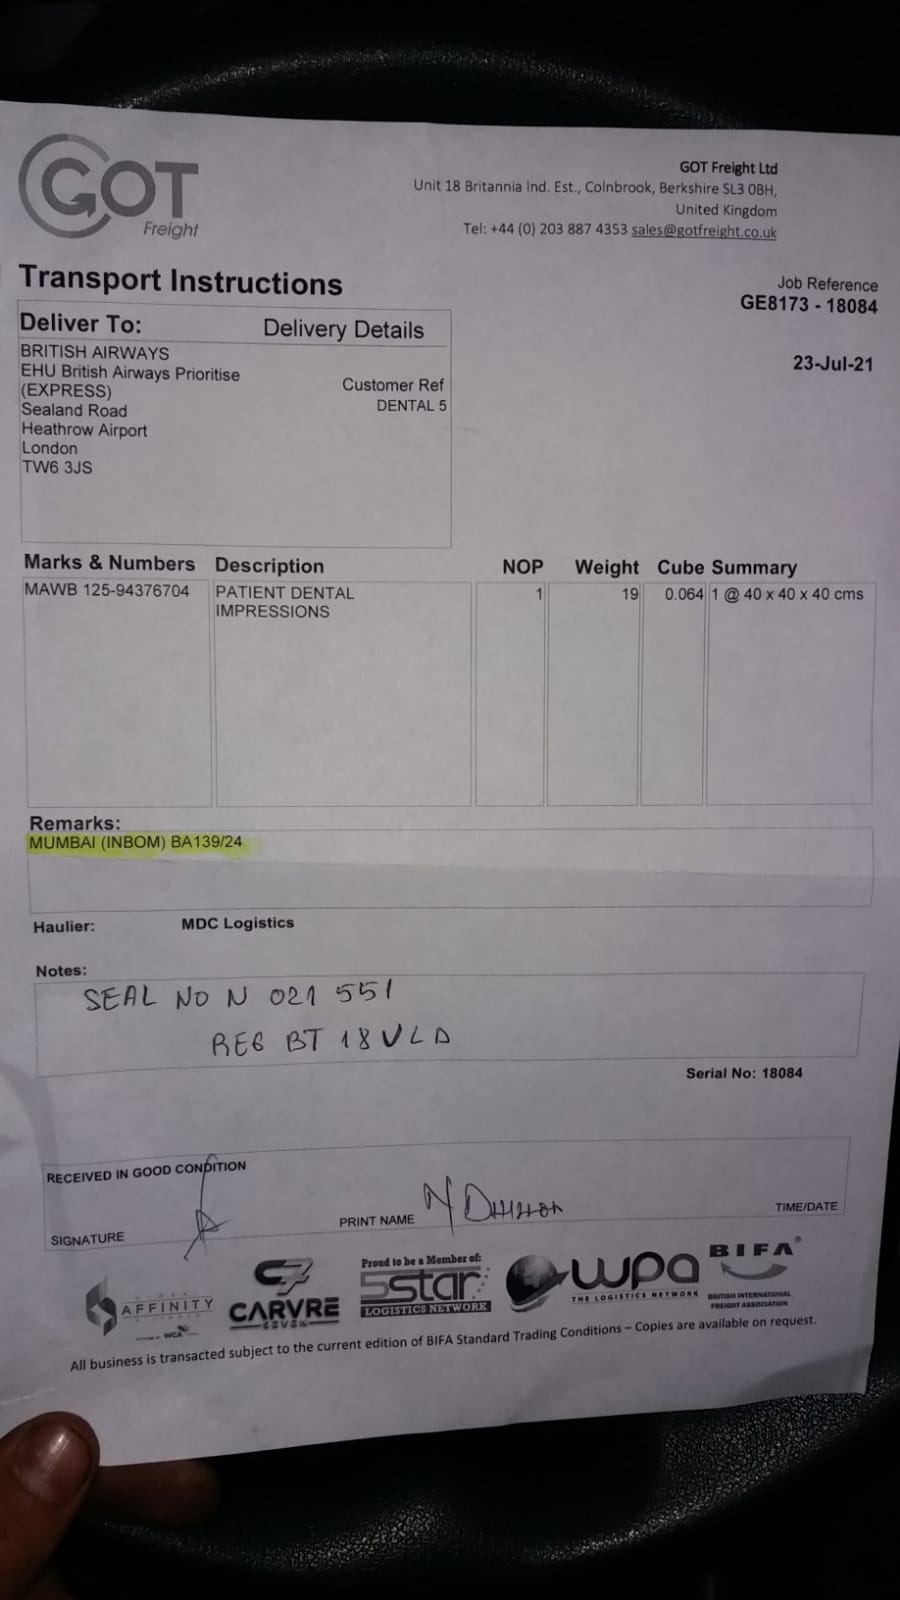 GOT
Freight
GOT Freight Ltd
Unit 18 Britannia Ind. Est., Colnbrook, Berkshire SL3 0BH,
United Kingdom
Tel: +44 (0) 203 887 4353 sales@gotfreight.co.uk
Transport Instructions
Job Reference
GE8173 - 18084
23-Jul-21
Deliver To: Delivery Details
BRITISH AIRWAYS
EHU British Airways Prioritise
(EXPRESS)
Sealand Road
Heathrow Airport
London
TW6 3JS
Customer Ref
DENTAL 5
Marks & Numbers Description NOP Weight Cube Summary
MAWB 125-94376704 PATIENT DENTAL 1 19 0.064 1 @ 40 x 40 x 40 cms
IMPRESSIONS
Remarks:
MUMBAI (INBOM) BA139/24
Haulier: MDC Logistics
Notes:
SEAL NO N 021 551
REG BT 18 VLD
Serial No: 18084
RECEIVED IN GOOD CONDITION
SIGNATURE PRINT NAME N TIME/DATE
AFFINITY
CARVRE
SEVEN
Proud to be a Member of:
5star
LOGISTICS NETWORK
wpa
THE LOGISTICS NETWORK
BIFA®
BRITISH INTERNATIONAL
FREIGHT ASSOCIATION
WCA
All business is transacted subject to the current edition of BIFA Standard Trading Conditions – Copies are available on request.